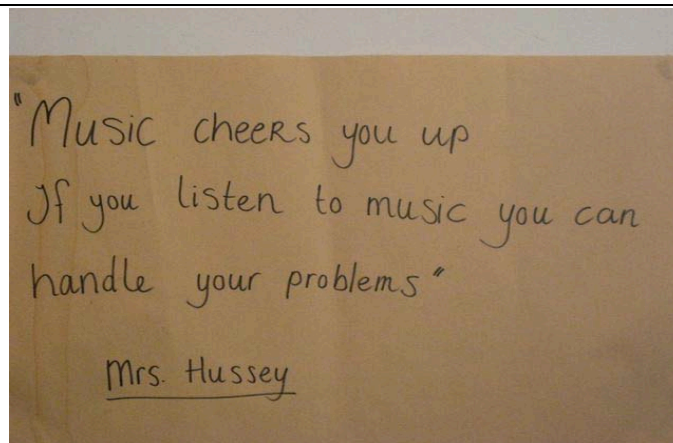 "Music cheeRs you up
If you listen to music you can
handle your problems"
Mrs. Hussey